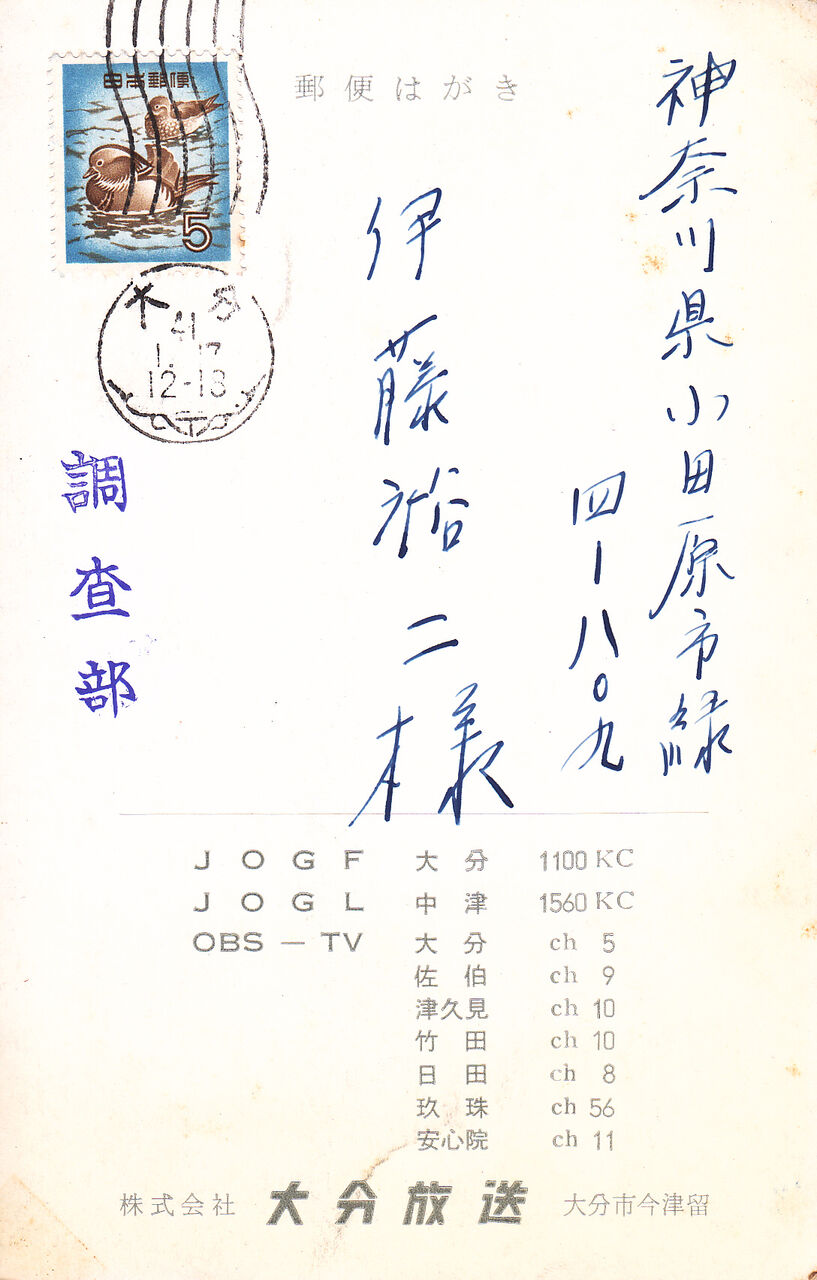 郵便はがき
日本郵便
5
大分
41
1.17
12-18
神奈川県小田原市緑
四-八〇九
伊藤裕二様
調査部
JOGF 大分 1100 KC
JOGL 中津 1560 KC
OBS-TV 大分 ch 5
佐伯 ch 9
津久見 ch 10
竹田 ch 10
日田 ch 8
玖珠 ch 56
安心院 ch 11
株式会社 大分放送 大分市今津留